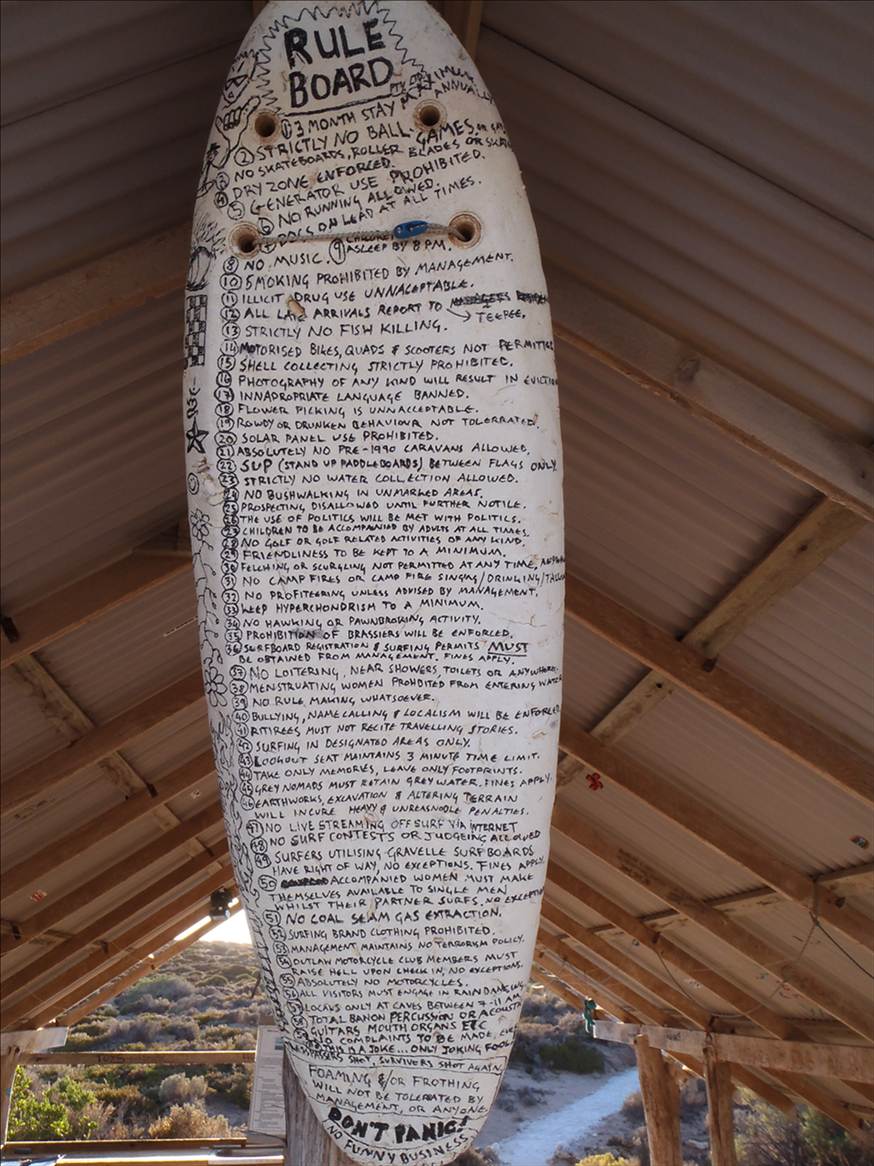 RULE
BOARD
MAXIMUM
① 3 MONTH STAY ANNUALLY
② STRICTLY NO BALL GAMES,
③ NO SKATEBOARDS, ROLLER BLADES OR
④ DRY ZONE ENFORCED.
⑤ GENERATOR USE PROHIBITED.
⑥ NO RUNNING ALLOWED.
⑦ DOGS ON LEAD AT ALL TIMES.
⑧ NO MUSIC. ⑨ CHILDREN ASLEEP BY 8 PM.
⑩ SMOKING PROHIBITED BY MANAGEMENT.
⑪ ILLICIT DRUG USE UNNACEPTABLE.
⑫ ALL LATE ARRIVALS REPORT TO
→ TEEPEE.
⑬ STRICTLY NO FISH KILLING.
⑭ MOTORISED BIKES, QUADS & SCOOTERS NOT PERMITTED
⑮ SHELL COLLECTING STRICTLY PROHIBITED.
⑯ PHOTOGRAPHY OF ANY KIND WILL RESULT IN EVICTION
⑰ INNAPROPRIATE LANGUAGE BANNED.
⑱ FLOWER PICKING IS UNNACCEPTABLE.
⑲ ROWDY OR DRUNKEN BEHAVIOUR NOT TOLERRATED.
⑳ SOLAR PANEL USE PROHIBITED.
㉑ ABSOLUTELY NO PRE-1990 CARAVANS ALLOWED,
㉒ SUP (STAND UP PADDLEBOARDS) BETWEEN FLAGS ONLY.
㉓ STRICTLY NO WATER COLLECTION ALLOWED.
㉔ NO BUSHWALKING IN UNMARKED AREAS.
㉕ PROSPECTING DISALLOWED UNTIL FURTHER NOTICE.
㉖ THE USE OF POLITICS WILL BE MET WITH POLITICS.
㉗ CHILDREN TO BE ACCOMPANIED BY ADULTS AT ALL TIMES.
㉘ NO GOLF OR GOLF RELATED ACTIVITIES OF ANY KIND.
㉙ FRIENDLINESS TO BE KEPT TO A MINIMUM.
㉚ FELCHING OR SCURGLING NOT PERMITTED AT ANY TIME,
㉛ NO CAMP FIRES OR CAMP FIRE SINGING/DRINKING/
㉜ NO PROFITEERING UNLESS ADVISED BY MANAGEMENT.
㉝ KEEP HYPERCHONDRISM TO A MINIMUM.
㉞ NO HAWKING OR PAWNBROKING ACTIVITY.
㉟ PROHIBITION OF BRASSIERS WILL BE ENFORCED.
㊱ SURFBOARD REGISTRATION & SURFING PERMITS MUST
BE OBTAINED FROM MANAGEMENT. FINES APPLY.
㊲ NO LOITERING, NEAR SHOWERS, TOILETS OR ANYWHERE.
㊳ MENSTRUATING WOMEN PROHIBTED FROM ENTERING WATER
㊴ NO RULE MAKING WHATSOEVER.
㊵ BULLYING, NAMECALLING & LOCALISM WILL BE ENFORCED
㊶ RITIREES MUST NOT RECITE TRAVELLING STORIES.
㊷ SURFING IN DESIGNATED AREAS ONLY.
㊸ LOOKOUT SEAT MAINTAINS 3 MINUTE TIME LIMIT.
㊹ TAKE ONLY MEMORIES, LEAVE ONLY FOOTPRINTS.
㊺ GREY NOMADS MUST RETAIN GREY WATER. FINES APPLY.
㊻ EARTHWORKS, EXCAVATION & ALTERING TERRAIN
WILL INCURE HEAVY & UNREASNOBLE PENALTIES.
㊼ NO LIVE STREAMING OFF SURF VIA INTERNET
㊽ NO SURF CONTESTS OR JUDGEING ALLOWED
㊾ SURFERS UTILISING GRAVELLE SURFBOARDS
HAVE RIGHT OF WAY, NO EXCEPTIONS. FINES APPLY.
㊿ ACCOMPANIED WOMEN MUST MAKE
THEMSELVES AVAILABLE TO SINGLE MEN
WHILST THEIR PARTNER SURFS. NO EXCEPTION
51 NO COAL SEAM GAS EXTRACTION.
52 SURFING BRAND CLOTHING PROHIBITED.
53 MANAGEMENT MAINTAINS NO TERRORISM POLICY.
54 OUTLAW MOTORCYCLE CLUB MEMBERS MUST
RAISE HELL UPON CHECK IN, NO EXCEPTIONS.
55 ABSOLUTELY NO MOTORCYCLES.
56 ALL VISITORS MUST ENGAGE IN RAIN DANCING.
57 LOCALS ONLY AT CAVES BETWEEN 7-11 AM
58 TOTAL BANON PERCUSSION OR ACOUSTIC
GUITARS MOUTH ORGANS ETC
NO COMPLAINTS TO BE MADE, EVER
A JOKE... ONLY JOKING FOOL
SHOT, SURVIVERS SHOT AGAIN.
FOAMING &/OR FROTHING
WILL NOT BE TOLERATED BY
MANAGEMENT, OR ANYONE.
DON'T PANIC!
NO FUNNY BUSINESS.